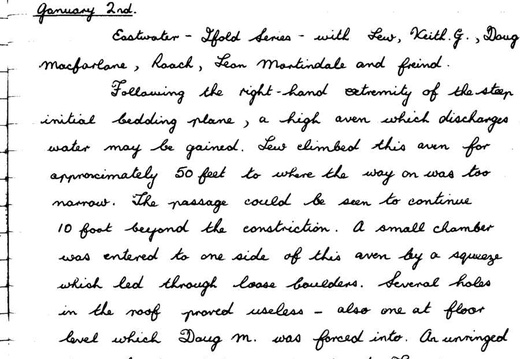 January 2nd.
Eastwater - Ifold Series - with Lew, Keith.G., Doug
Macfarlane, Roach, Sean Martindale and freind.
Following the right-hand extremity of the steep
initial bedding plane, a high aven which discharges
water may be gained. Lew climbed this aven for
approximately 50 feet to where the way on was too
narrow. The passage could be seen to continue
10 foot beyond the constriction. A small chamber
was entered to one side of this aven by a squeeze
which led through loose boulders. Several holes
in the roof proved useless - also one at floor
level which Doug M. was forced into. An unringed